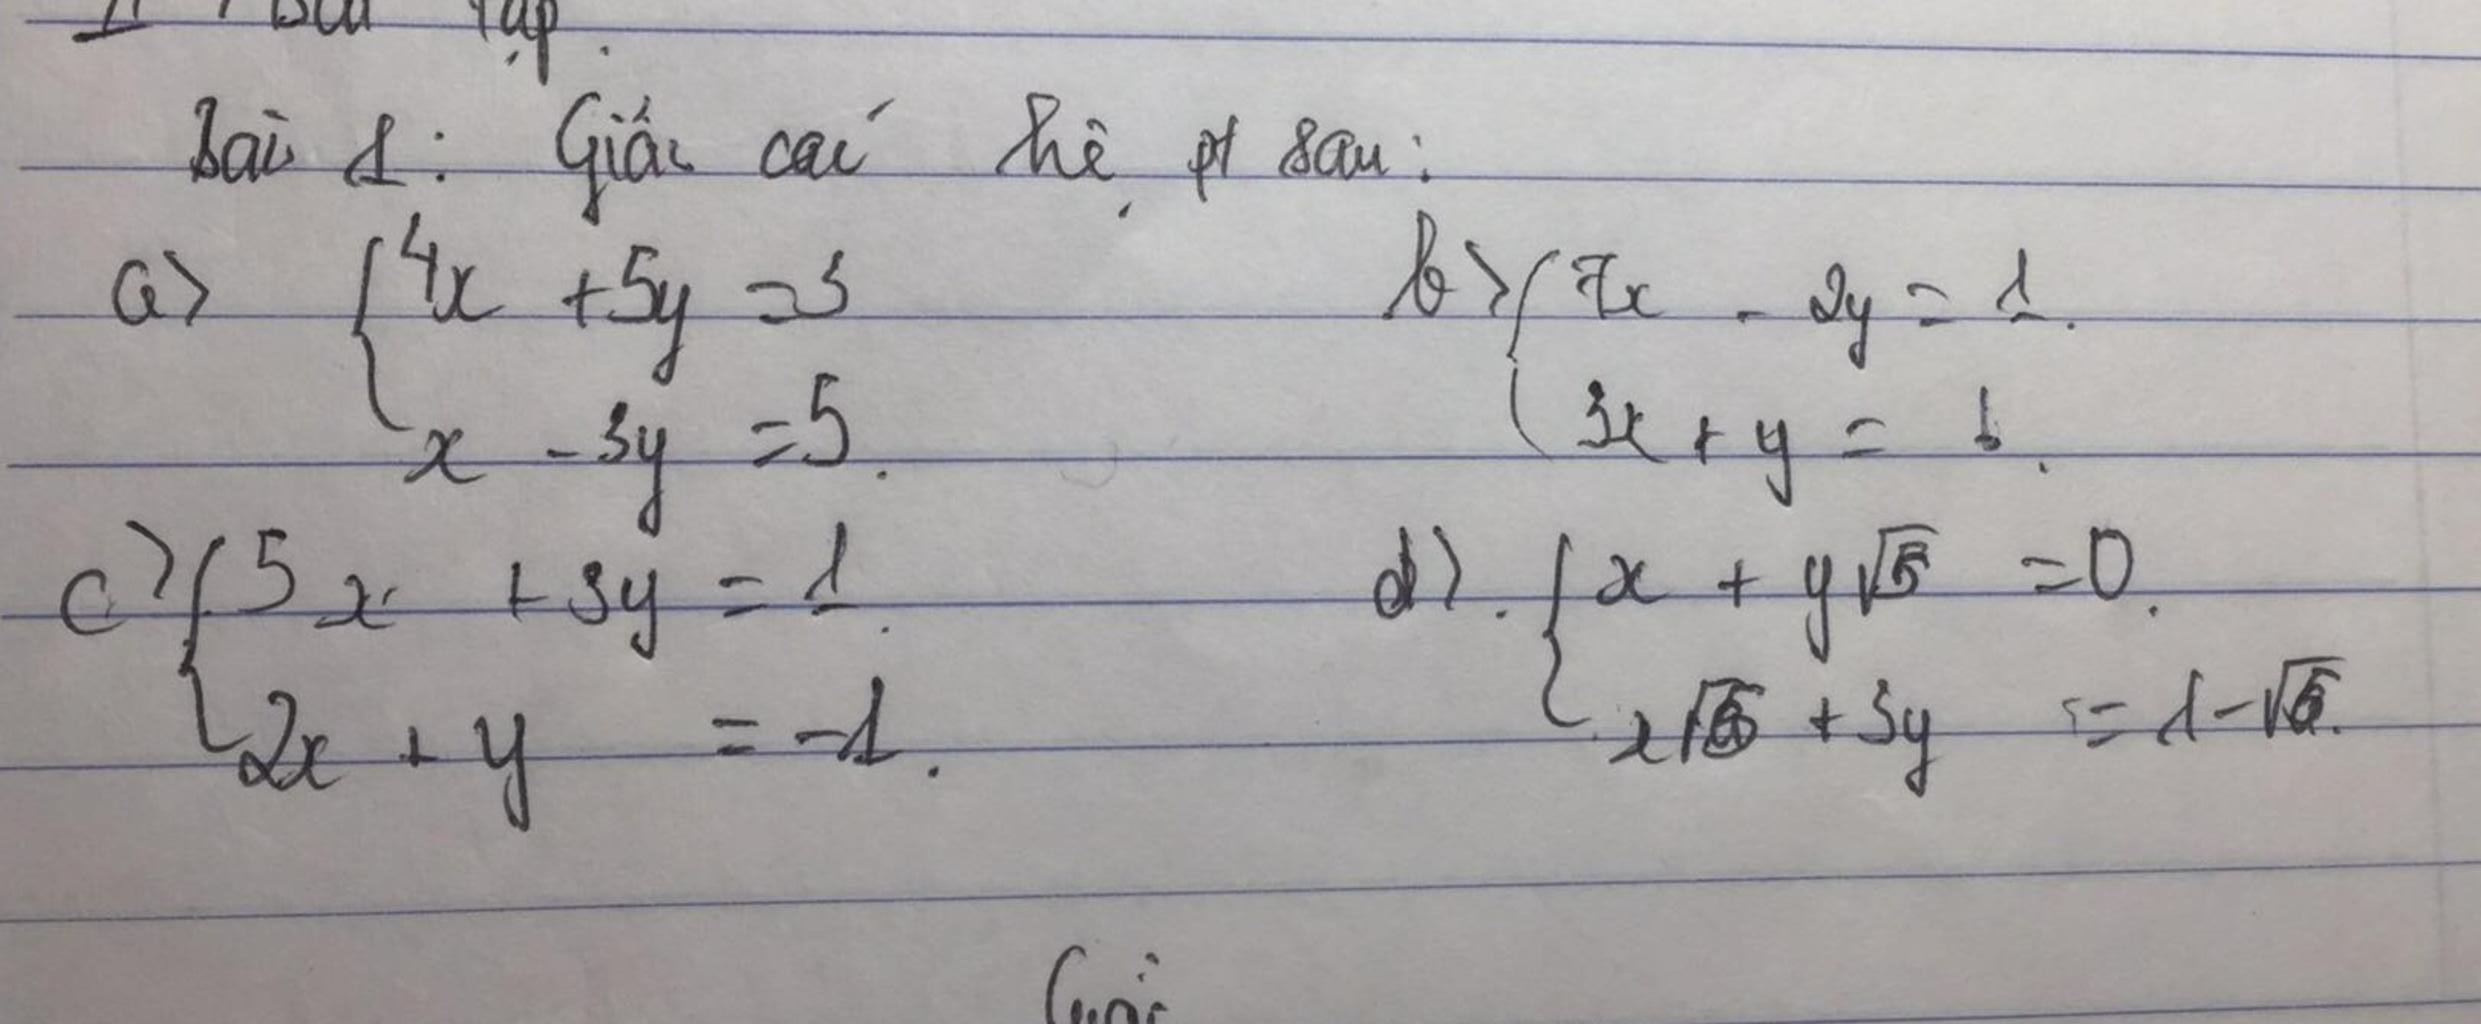 II, Bài tập.
Bài 1: Giải các hệ pt sau:
a> { 4x + 5y = 3
x - 3y = 5.
b> { 7x - 2y = 1.
3x + y =
c> { 5x + 3y = 1.
2x + y = -1.
d>. { x + y√5 = 0.
x√ + 3y = 1 - √
Giải